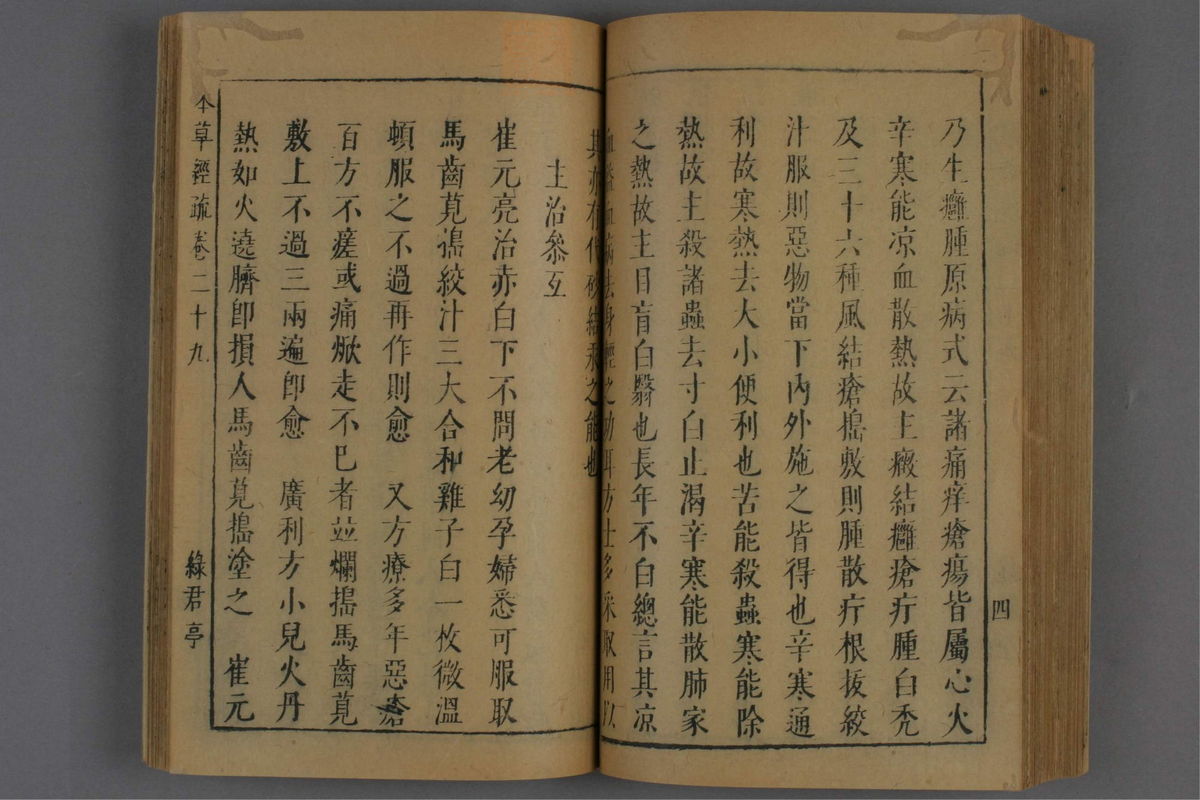 乃生癰腫原病式云諸痛痒瘡瘍皆屬心火
辛寒能凉血散熱故主癥結癰瘡疔腫白禿
及三十六種風結瘡搗敷則腫散疔根拔絞
汁服則惡物當下內外施之皆得也辛寒通
利故寒熱去大小便利也苦能殺蟲寒能除
熱故主殺諸蟲去寸白止渴辛寒能散肺家
之熱故主目盲白翳也長年不白總言其凉
血 血 去身輕之功耳方士多采取用以
其亦有伏砂結汞之能也
主治叅互
崔元亮治赤白下不問老幼孕婦悉可服取
馬齒莧搗絞汁三大合和雞子白一枚微溫
頓服之不過再作則愈 又方療多年惡瘡
百方不瘥或痛焮走不巳者並爛搗馬齒莧
敷上不過三兩遍卽愈 廣利方小兒火丹
熱如火遶臍卽損人馬齒莧搗塗之 崔元
四
本草經疏卷二十九
綠君亭